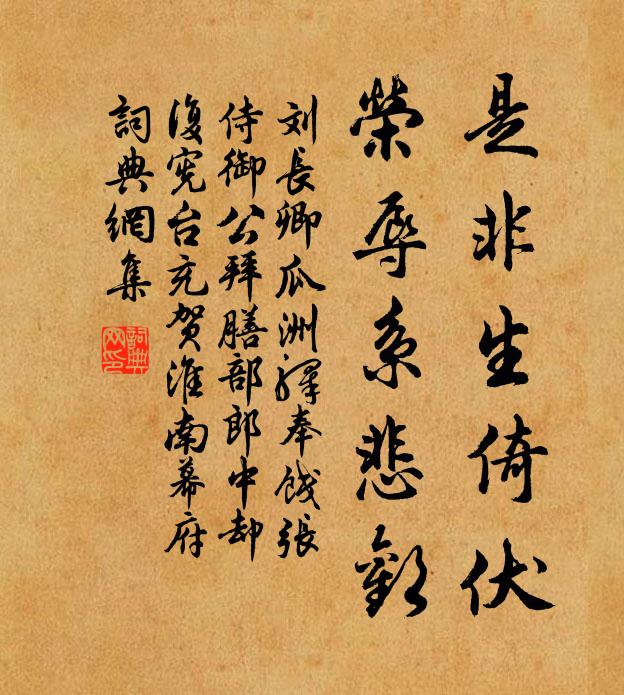 是非生倚伏
榮辱系悲歡
刘長卿瓜洲驛奉餞張
侍御公拜膳部郎中却
復宪台充贺淮南幕府
詞典網集
詞典网印